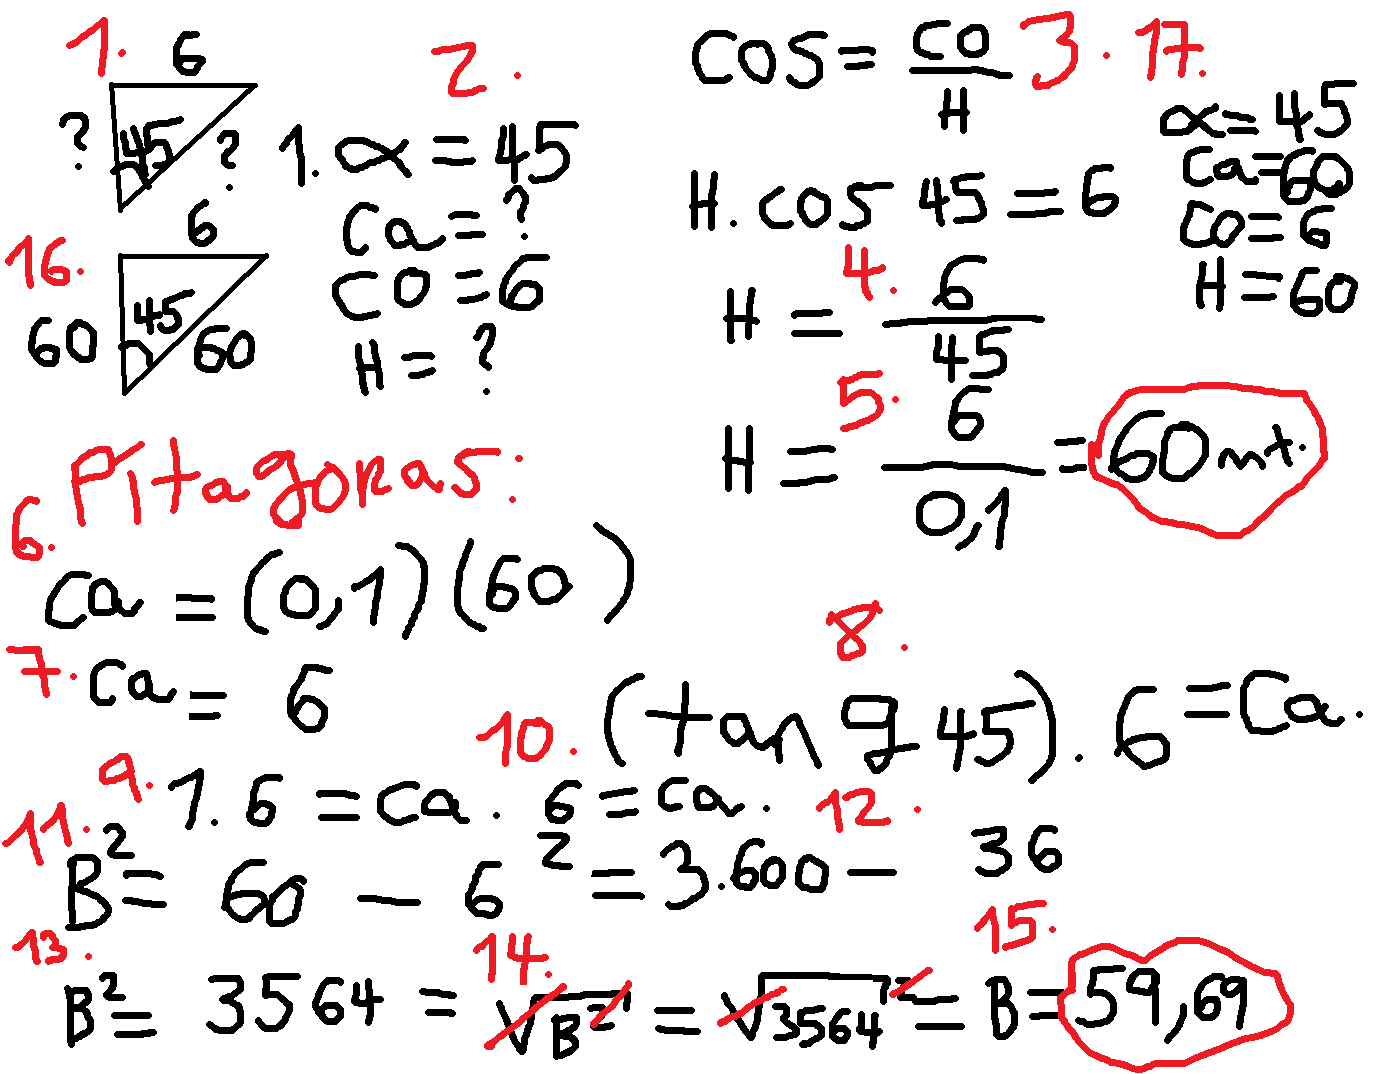 1.
6
? 45 ?
16.
6
60 45 60
2.
1. α = 45
Ca = ?
CO = 6
H = ?
3.
COS = CO / H
H. COS 45 = 6
4.
H = 6 / 45
5.
H = 6 / 0,1 = 60 mt.
17.
α = 45
Ca = 60
CO = 6
H = 60
Pitagoras:
6.
Ca = (0,1) (60)
7. Ca = 6
8.
(tan g 45). 6 = Ca.
9. 1. 6 = Ca.
10. 6 = Ca.
11. B² = 60 - 6² =
12. 3.600 - 36
13. B² = 3564 =
14. √B² = √3564 =
15. B = 59,69